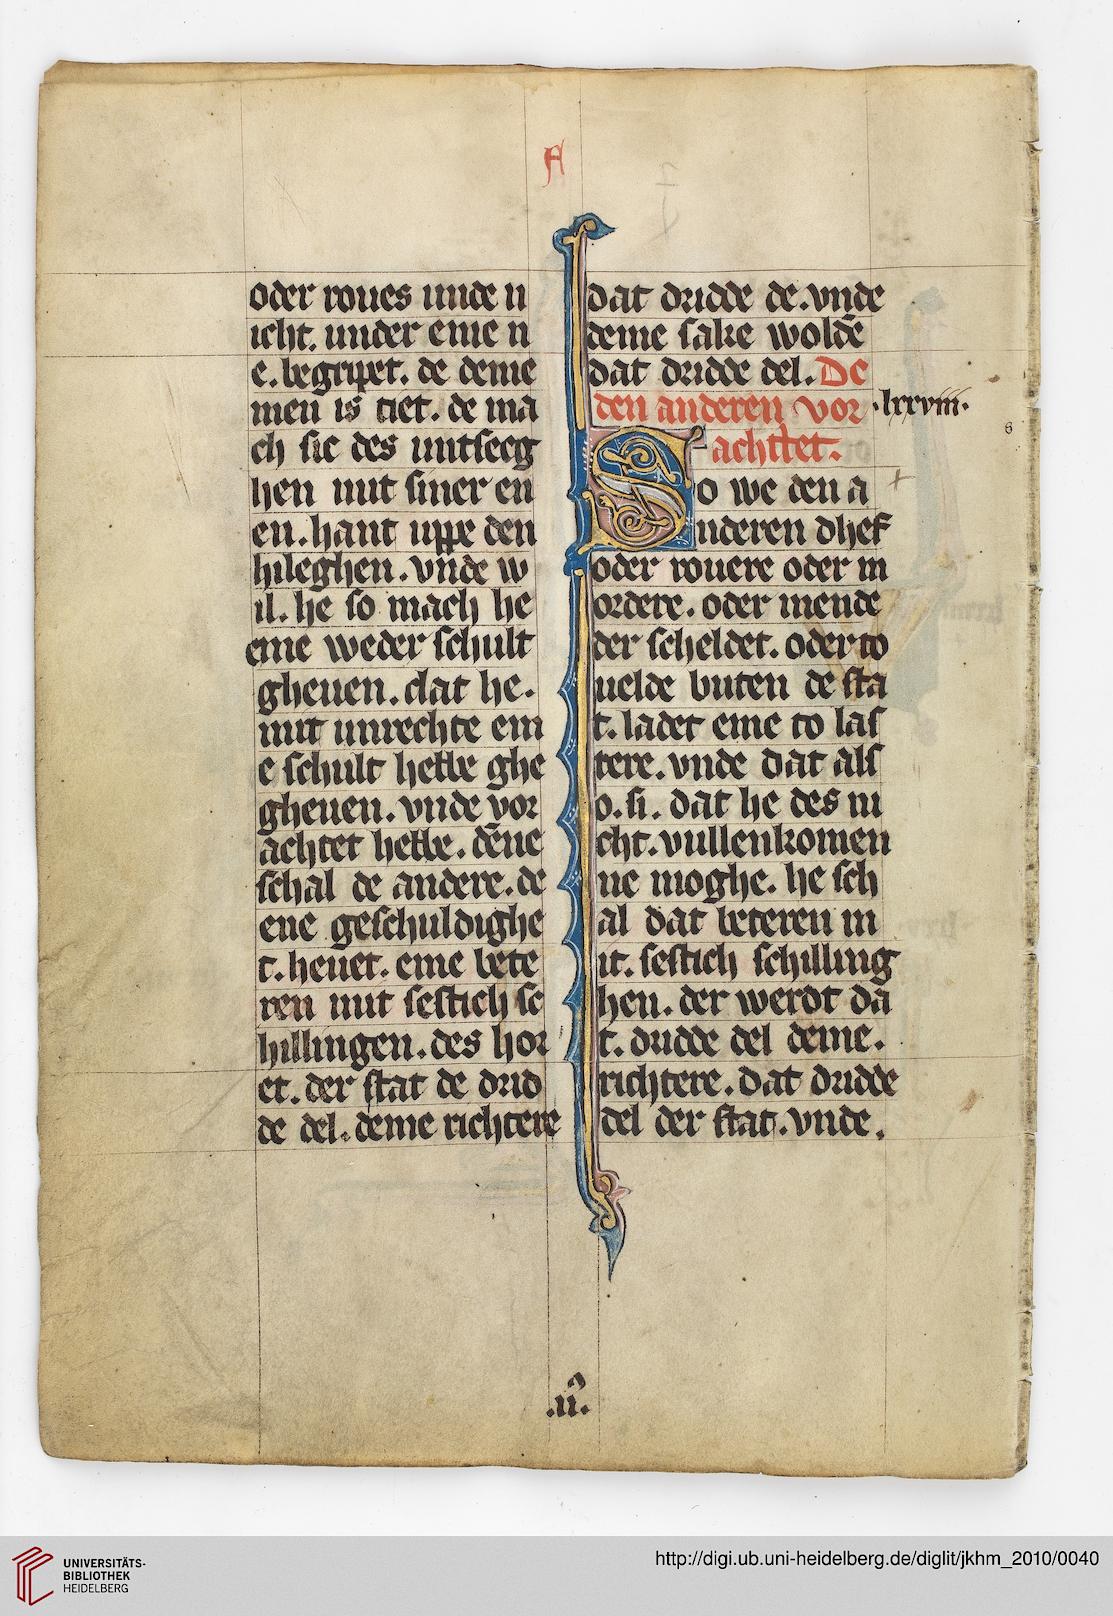 A
oder roues unde n
icht. under eme n
e. begripet. de deme
men is tiet. de ma
ch sic des untsecg
hen mit siner en
en. hant uppe den
hileghen. vnde w
il. he so mach he
eme weder schult
gheuen. dat he.
mit unrechte em
e schult hebbe ghe
gheuen. vnde vor
achtet hebbe. dēne
schal de andere. de
ene geschuldighe
t. heuet. eme bete
ren mit sestich sc
hillingen. des hor
et. der stat de drid
de del. deme richtere
dat dridde de. vnde
deme sake woldē
dat dridde del. De
den anderen vor
.lxxviii.
achttet.
So we den a
nderen dhef
oder rouere oder m
ordere. oder meude
der scheldet. oder to
uelde buten de sta
t. ladet eme to las
tere. vnde dat als
o. si. dat he des ni
cht. vullenkomen
ne moghe. he sch
al dat beteren m
it. sestich schilling
hen. der werdt da
t. dridde del deme.
richtere. dat dridde
del der stat. vnde.
UNIVERSITÄTS-
BIBLIOTHEK
HEIDELBERG
http://digi.ub.uni-heidelberg.de/diglit/jkhm_2010/0040